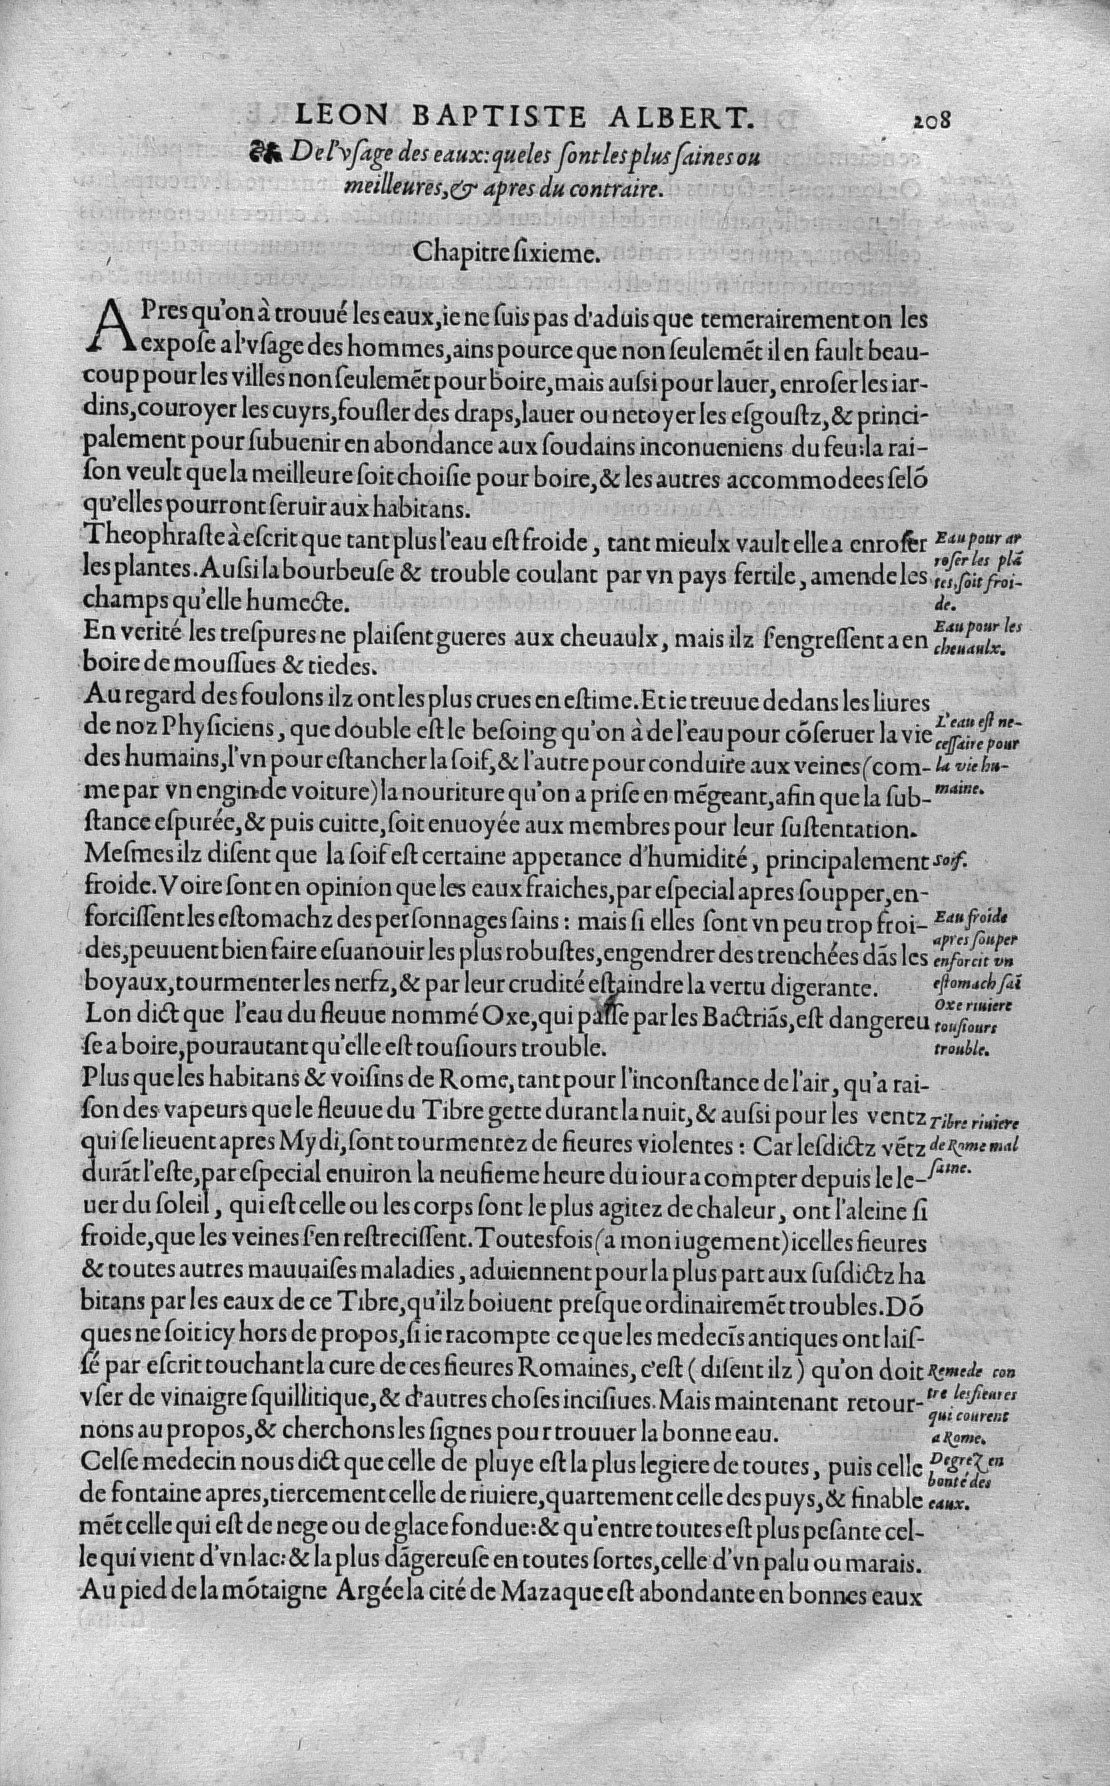 LEON BAPTISTE ALBERT. 208
De l'vſage des eaux: queles ſont les plus ſaines ou
meilleures, & apres du contraire.
Chapitre ſixieme.
APres qu'on à trouué les eaux, ie ne ſuis pas d'aduis que temerairement on les
expoſe a l'vſage des hommes, ains pource que non ſeulemẽt il en fault beau-
coup pour les villes non ſeulemẽt pour boire, mais auſsi pour lauer, enroſer les iar-
dins, couroyer les cuyrs, fouller des draps, lauer ou netoyer les eſgouſtz, & princi-
palement pour ſubuenir en abondance aux ſoudains inconueniens du feu: la rai-
ſon veult que la meilleure ſoit choiſie pour boire, & les autres accommodees ſelõ
qu'elles pourront ſeruir aux habitans.
Theophraſte à eſcrit que tant plus l'eau eſt froide, tant mieulx vault elle a enroſer
les plantes. Auſsi la bourbeuſe & trouble coulant par vn pays fertile, amende les
champs qu'elle humecte.
Eau pour ar
roſer les plã
tes, ſoit froi-
de.
En verité les treſpures ne plaiſent gueres aux cheuaulx, mais ilz ſ'engreſſent a en
boire de mouſſues & tiedes.
Eau pour les
cheuaulx.
Au regard des foulons ilz ont les plus crues en eſtime. Et ie treuue dedans les liures
de noz Phyſiciens, que double eſt le beſoing qu'on à de l'eau pour cõſeruer la vie
des humains, l'vn pour eſtancher la ſoif, & l'autre pour conduire aux veines (com-
me par vn engin de voiture) la nouriture qu'on a priſe en mẽgeant, afin que la ſub-
ſtance eſpurée, & puis cuitte, ſoit enuoyée aux membres pour leur ſuſtentation.
L'eau eſt ne-
ceſſaire pour
la vie hu-
maine.
Meſmes ilz diſent que la ſoif eſt certaine appetance d'humidité, principalement
froide. Voire ſont en opinion que les eaux fraiches, par eſpecial apres ſoupper, en-
forciſſent les eſtomachz des perſonnages ſains: mais ſi elles ſont vn peu trop froi-
des, peuuent bien faire eſuanouir les plus robuſtes, engendrer des trenchées dãs les
boyaux, tourmenter les nerfz, & par leur crudité eſtaindre la vertu digerante.
Soif.
Eau froide
apres ſouper
enforcit vn
eſtomach ſaĩ
Lon dict que l'eau du fleuue nommé Oxe, qui paſſe par les Bactriãs, eſt dangereu
ſe a boire, pourautant qu'elle eſt touſiours trouble.
Oxe riuiere
touſiours
trouble.
Plus que les habitans & voiſins de Rome, tant pour l'inconſtance de l'air, qu'a rai-
ſon des vapeurs que le fleuue du Tibre gette durant la nuit, & auſsi pour les ventz
qui ſe lieuent apres Mydi, ſont tourmentez de fieures violentes: Car leſdictz vẽtz
durãt l'eſte, par eſpecial enuiron la neufieme heure du iour a compter depuis le le-
uer du ſoleil, qui eſt celle ou les corps ſont le plus agitez de chaleur, ont l'aleine ſi
froide, que les veines ſ'en reſtreciſſent. Toutesfois (a mon iugement) icelles fieures
& toutes autres mauuaiſes maladies, aduiennent pour la plus part aux ſuſdictz ha
bitans par les eaux de ce Tibre, qu'ilz boiuent preſque ordinairemẽt troubles. Dõ
ques ne ſoit icy hors de propos, ſi ie racompte ce que les medecĩs antiques ont laiſ-
ſé par eſcrit touchant la cure de ces fieures Romaines, c'eſt (diſent ilz) qu'on doit
vſer de vinaigre ſquillitique, & d'autres choſes inciſiues. Mais maintenant retour-
nons au propos, & cherchons les ſignes pour trouuer la bonne eau.
Tibre riuiere
de Rome mal
ſaine.
Remede con
tre les fieures
qui courent
a Rome.
Celſe medecin nous dict que celle de pluye eſt la plus legiere de toutes, puis celle
de fontaine apres, tiercement celle de riuiere, quartement celle des puys, & finable
mẽt celle qui eſt de nege ou de glace fondue: & qu'entre toutes eſt plus peſante cel-
le qui vient d'vn lac: & la plus dãgereuſe en toutes ſortes, celle d'vn palu ou marais.
Degrez en
bonté des
eaux.
Au pied de la mõtaigne Argée la cité de Mazaque eſt abondante en bonnes eaux